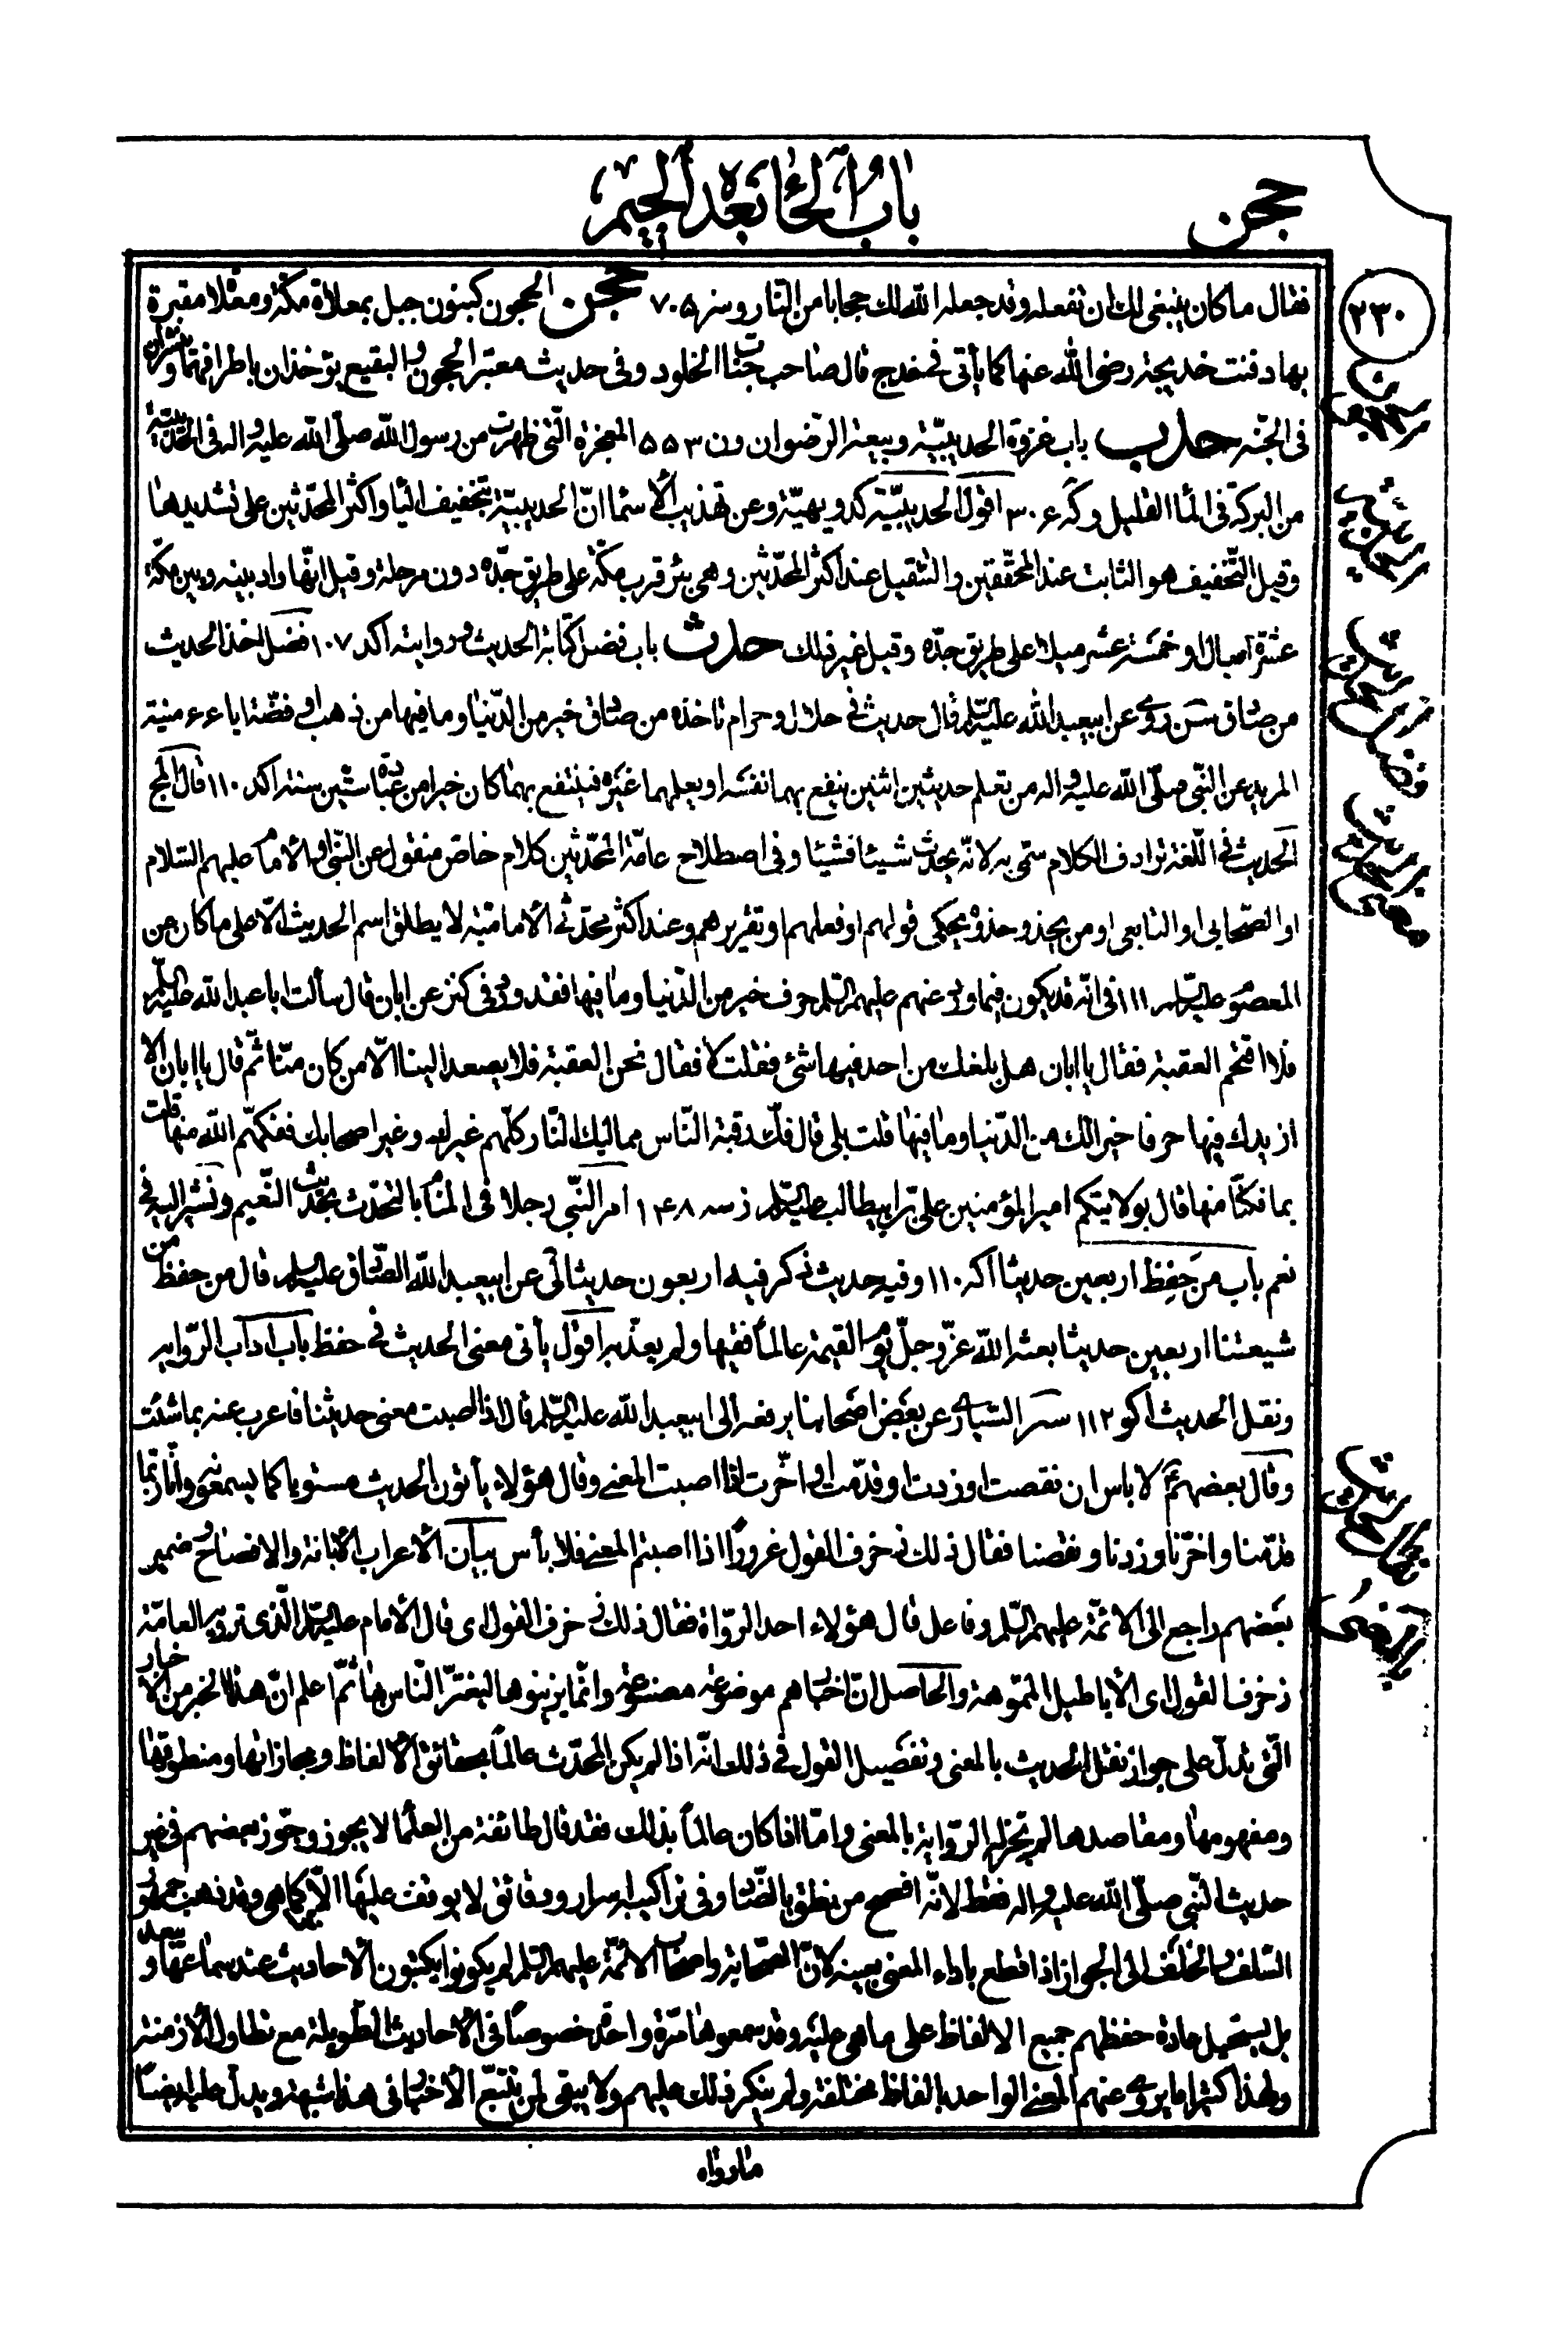 حجن
باب الحاء بعده الجيم
٢٣٠
فقال ما كان ينبغى لك ان تفعله وقد جعله الله لك حجابا من النار و سز ٧٠٥ حجن الحجون كبنون جبل بمعلاة مكة ومعلا مقبرة
بها دفنت خديجة رضى الله عنها كما يأتى فى خدج قال صاحب جنات الخلود وفى حديث معتبر الحجون والبقيع يؤخذان باطرافهما وينثران
فى الجنه حدب باب غزوة الحديبيّة وبيعة الرّضوان ون ٥٥٣ المعجزة الّتى ظهرت من رسول الله صلّى الله عليه واله فى الحديبيّة
من البركة فى الماء القليل و كه ٣٠۶ اقول الحديبيّة كدويهيّة وعن تهذيب الأسماء انّ الحديبيّة بتخفيف الياء واكثر المحدّثين على تشديدها
وقيل التّخفيف هو الثابت عند المحقّقين والتّثقيل عند اكثر المحدّثين وهى بئر قرب مكّة على طريق جدّه دون مرحلة وقيل انّها واد بينه وبين مكّة
عشرة اميال او خمسة عشر ميلا على طريق جدّه وقيل غير ذلك حدث باب فضل كتابة الحديث وروايته اكد ١٠٧ فضل اخذ الحديث
من صادق سن روى عن ابيعبد الله عليه السّلم قال حديث فى حلال وحرام تاخذه من صادق خير من الدّنيا وما فيها من ذهب او فضّة ايا ۶۶ منية
المريد عن النّبى صلّى الله عليه واله من تعلم حديثين اثنين ينفع بهما نفسه او يعلمهما غيره فينتفع بهما كان خيرا من عبادة ستّين سنة اكد ١١٠ قال المج
الحديث فى اللّغة ترادف الكلام سمّى به لانّه يحدث شيئا فشيئا وفى اصطلاح عامّة المحدّثين كلام خاص منقول عن النّبى او الأمام عليهم السّلام
او الصّحابى او التابعى او من يحذو حذوه يحكى قولهم او فعلهم او تقريرهم وعند اكثر محدّثى الأماميّة لا يطلق اسم الحديث الّا على ما كان عن
المعصوم عليه السّلم ١١١ فى انّه قد يكون فيما روى عنهم عليهم السّلم حرف خير من الدّنيا وما فيها فقد روى فى كنز عن ابان قال سألت ابا عبد الله عليه السّلم
فلا اقتحم العقبة فقال يا ابان هل بلغك من احد فيها شئ فقلت لا فقال نحن العقبة فلا يصعد الينا الّا من كان منّا ثمّ قال يا ابان الا
ازيدك فيها حرفا خير لك من الدّنيا وما فيها قلت بلى قال فكّ رقبة النّاس مماليك النّار كلّهم غيرك وغير اصحابك ففكّهم الله منها قلت
بما فكّنا منها قال بولايتكم امير المؤمنين علىّ بن ابيطالب عليه السّلم ز سه ١۴٨ امر النّبى رجلا فى المنام بالتحدّث بحديث النّعيم ونشير اليه فى
نعم باب من حفظ اربعين حديثا اكه ١١٠ وفيه حديث ذكر فيه اربعون حديثا لى عن ابيعبد الله الصّادق عليه السلم قال من حفظ من
شيعتنا اربعين حديثا بعثه الله عزّ وجلّ يوم القيمة عالما فقيها ولم يعذّبه اقول يأتى معنى الحديث فى حفظ باب اداب الرّواية
ونقل الحديث اكو ١١٢ سر السّيارى عن بعض اصحابنا يرفعه الى ابيعبد الله عليه السّلم قال اذا اصبت معنى حديثنا فاعرب عنه بما شئت
وقال بعضهم لا باس ان نقصت او زدت او قدّمت او اخّرت اذا اصبت المعنى وقال هؤلاء يأتون الحديث مستويا كما يسمعونه وانّا ربّما
قدّمنا واخّرنا وزدنا ونقصنا فقال ذلك زخرف القول غرورا اذا اصبتم المعنى فلا بأس بيان الأعراب الأبانة والافصاح وضمير
بعضهم راجع الى الأئمّة عليهم السّلم وفاعل قال هؤلاء احد الرّواة فقال ذلك زخرف القول اى قال الأمام عليه السّلم الّذى ترويه العامّة
زخرف القول اى الأباطيل المموّهة والحاصل انّ اخبارهم موضوعة مصنوعة وانّما يزيّنوها ليغترّ النّاس بها ثمّ اعلم انّ هذا الخبر من الأخبار
الّتى تدلّ على جواز نقل الحديث بالمعنى وتفصيل القول فى ذلك انّه اذا لم يكن المحدّث عالما بحقائق الألفاظ ومجازاتها ومنطوقها
ومفهومها ومقاصدها لم يجز له الرّواية بالمعنى وامّا اذا كان عالما بذلك فقد قال طائفة من العلماء لا يجوز وجوّز بعضهم فى غير
حديث النّبى صلّى الله عليه واله فقط لانّه افصح من نطق بالضّاد وفى تراكيبه اسرار ودقائق لا يوقف عليها الّا بها كما هى وقد ذهب جمهور
السّلف والخلف الى الجواز اذا قطع باداء المعنى بعينه لانّ الصّحابة واصحاب الأئمّة عليهم السّلم لم يكونوا يكتبون الأحاديث عند سماعها ويبعد
بل يستحيل عادة حفظهم جميع الالفاظ على ما هى عليه وقد سمعوها مرّة واحدة خصوصا فى الأحاديث الطّويلة مع تطاول الأزمنة
ولهذا كثيرا ما يروى عنهم المعنى الواحد بالفاظ مختلفة ولم ينكر ذلك عليهم ولا يبقى لمن تتبّع الأخبار فى هذا شبهة ويدلّ عليه ايضا
ما رواه